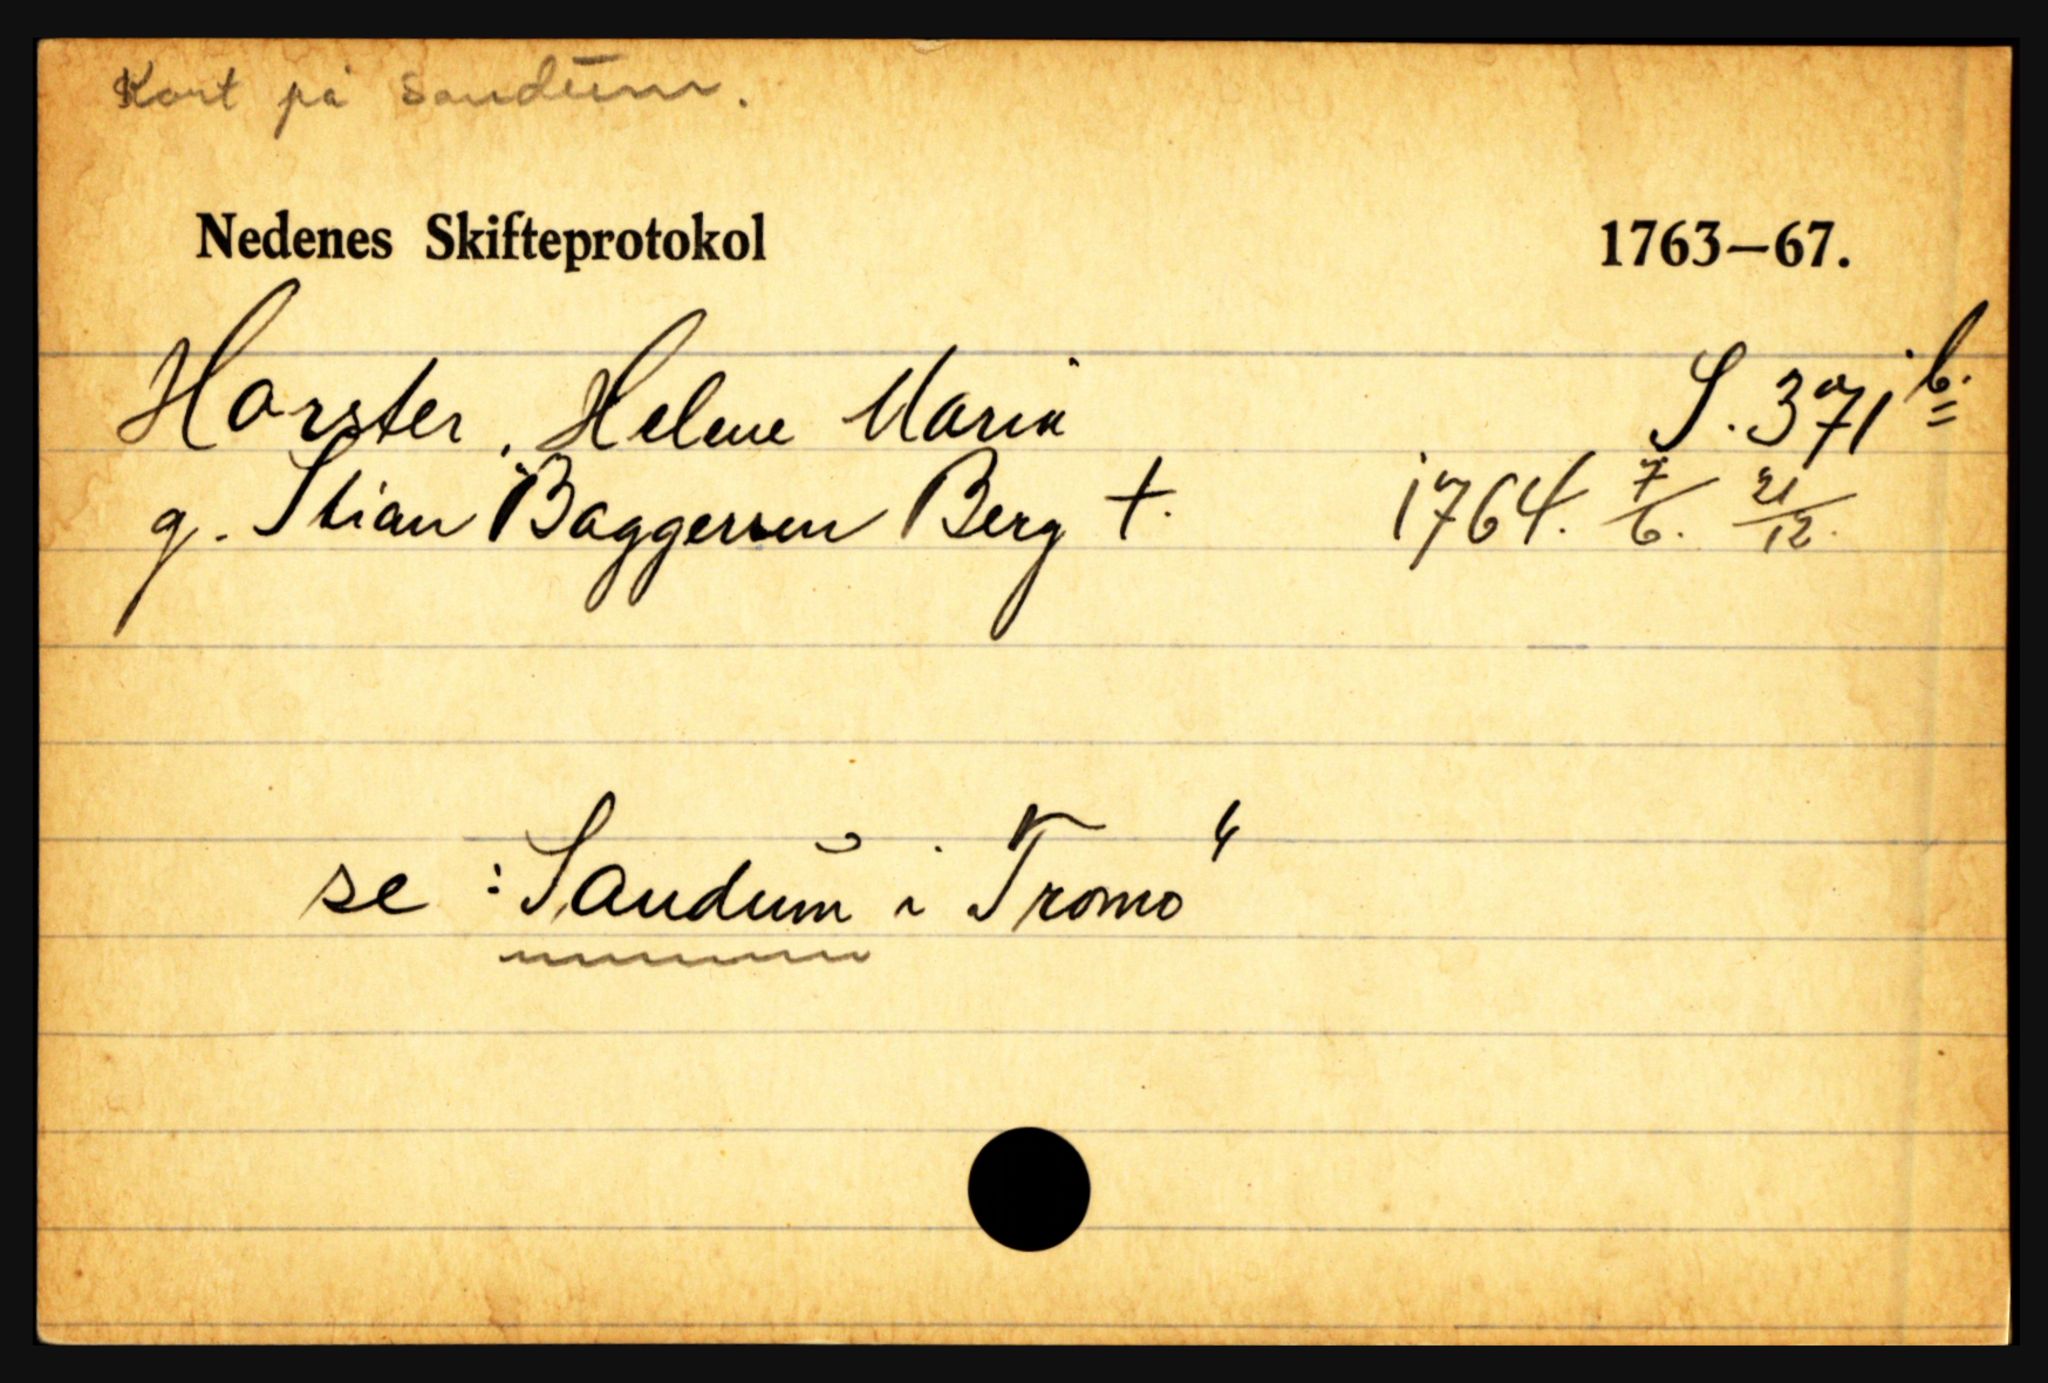 Kort på Sandum.
Nedenes Skifteprotokol 1763—67.
Horster, Helene Maria S. 371 b.
g. Stian Baggersen Berg †. 1764. 7/6. 21/12.
se: Sandum i Tromö